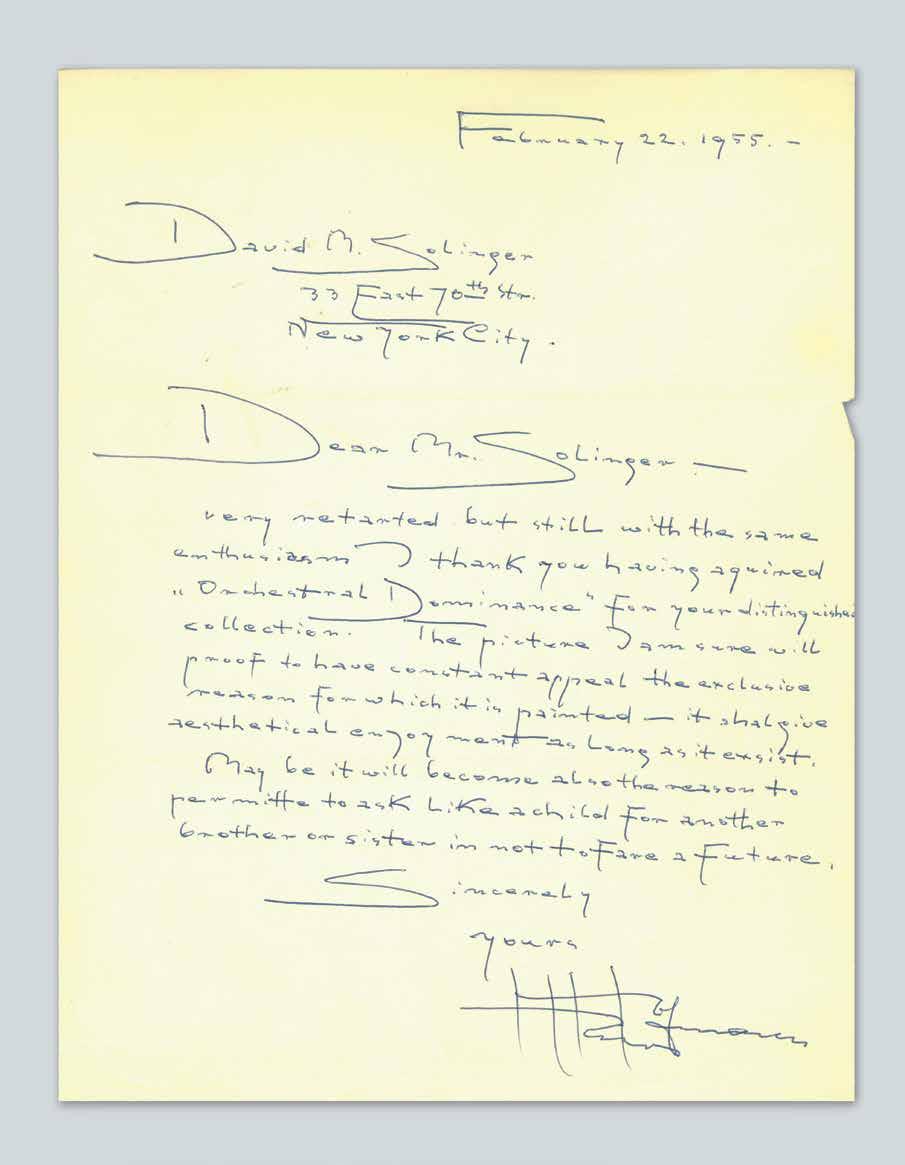 February 22. 1955. –
David M. Solinger
33 East 70th Str.
New York City.
Dear Mr. Solinger —
very retarted but still with the same
enthusiasm I thank you having aquired
„Orchestral Dominance" for your distinguished
collection. The picture I am sure will
proof to have constant appeal the exclusive
reason for which it is painted — it shal give
aesthetical enjoyment as long as it exsist.
May be it will become also the reason to
permitte to ask like a child for another
brother or sister in not to fare a Future.
Sincerely
yours
Hans Hofmann